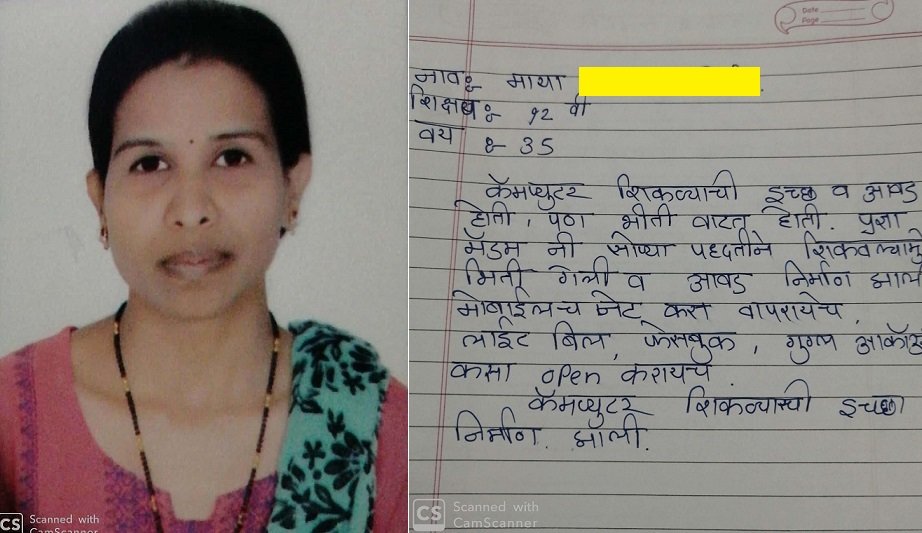 Date
Page
नाव : माया
शिक्षण : १२ वी
वय : 35
कॅमप्युटर शिकण्याची इच्छा व आवड
होती, पण भीती वाटत होती. प्रज्ञा
मॅडम नी सोप्या पध्दतीने शिकवल्यामु
भिती गेली व आवड निर्माण झाली
मोबाईलच नेट कस वापरायचे,
लाईट बिल, फेसबुक, गुगल आकॉऊ
कसा open करायच.
कॅमप्युटर शिकण्याची इच्छा
निर्माण झाली.
CS Scanned with
CamScanner
CS Scanned with
CamScanner